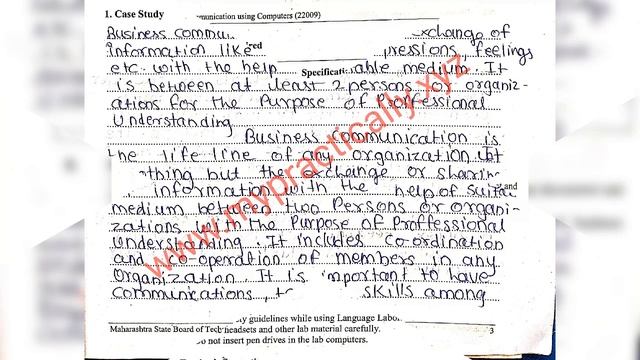 1. Case Study
munication using Computers (22009)
Business commu. xchange of
Information like red pressions, feelings
etc. with the help Specificat able medium. It
is between at least 2 persons or organiz-
ations for the Purpose of Proffessional
Understanding
Business communication is
the life line of any organization. It
thing but the exchainge or sharin
information with the help of suita and
medium between two Persons or organi-
zations with the Purpose of Proffessional
Understanding. It includes co-ordination
and co-operation of members in any
Organization. It is important to have
communications, skills among
guidelines while using Language Labo.
Maharashtra State Board of Tech headsets and other lab material carefully. 3
o not insert pen drives in the lab computers.
www.mypractically.xyz